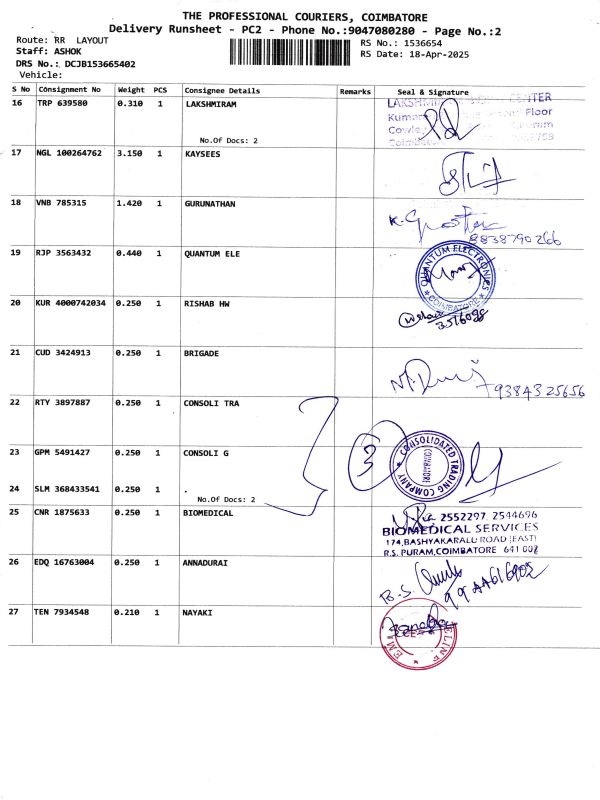 THE PROFESSIONAL COURIERS, COIMBATORE
Delivery Runsheet - PC2 - Phone No.:9047080280 - Page No.:2
Route: RR LAYOUT
Staff: ASHOK
DRS No.: DCJB153665402
Vehicle:
RS No.: 1536654
RS Date: 18-Apr-2025
S No Consignment No Weight PCS Consignee Details Remarks Seal & Signature
16 TRP 639580 0.310 1 LAKSHMIRAM
No.Of Docs: 2
LAKSHMI CENTER
Floor
17 NGL 100264762 3.150 1 KAYSEES
18 VNB 785315 1.420 1 GURUNATHAN
8838790266
19 RJP 3563432 0.440 1 QUANTUM ELE
QUANTUM ELECTRONICS
COIMBATORE
20 KUR 4000742034 0.250 1 RISHAB HW
3516098
21 CUD 3424913 0.250 1 BRIGADE
9384325656
22 RTY 3897887 0.250 1 CONSOLI TRA
23 GPM 5491427 0.250 1 CONSOLI G
3
CONSOLIDATED TRADING COMPANY
24 SLM 368433541 0.250 1 .
No.Of Docs: 2
25 CNR 1875633 0.250 1 BIOMEDICAL
2552297 2544696
BIOMEDICAL SERVICES
174,BASHYAKARALU ROAD (EAST)
R.S. PURAM,COIMBATORE 641 002
26 EDQ 16763004 0.250 1 ANNADURAI
27 TEN 7934548 0.210 1 NAYAKI